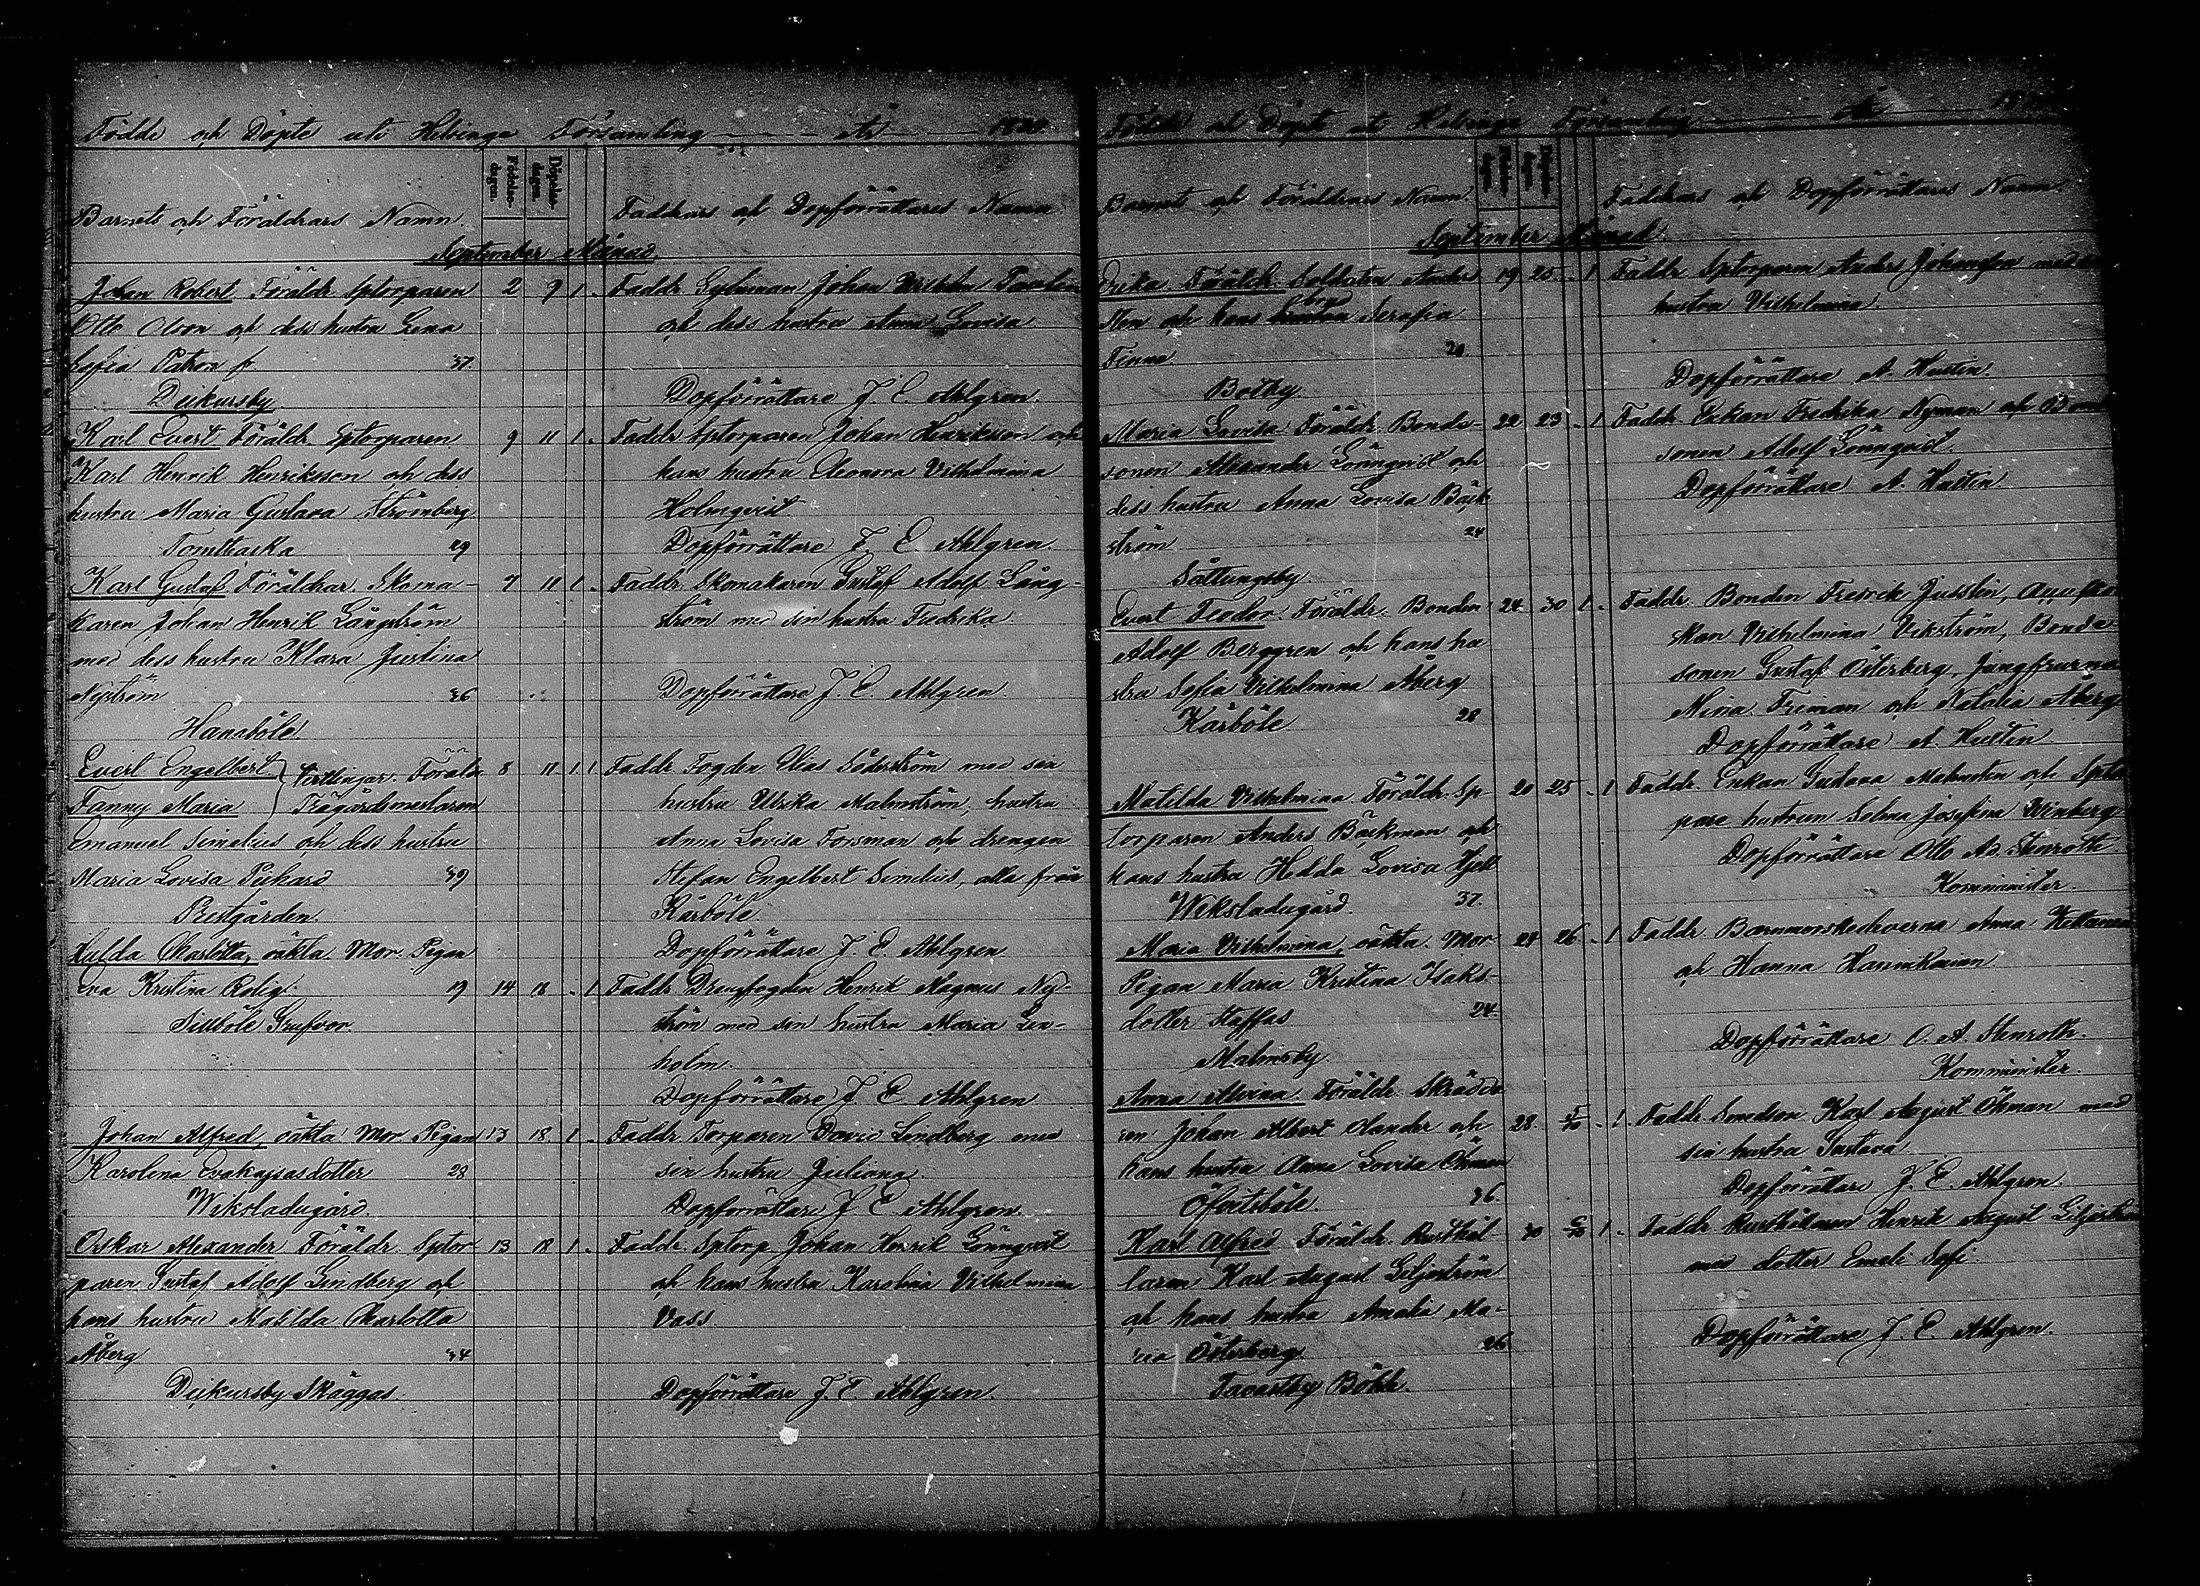 Födde och Döpte uti Helsinge Församling År
Födelse-dagen. Döpelse-dagen.
Barnets och Föräldrars Namn. Faddrars och Dopförrättares Namn
September Månad.
Johan Robert Föräldr. Sptorparen 2 9 1 -
Otto Olson och dess hustru Lena
Sofia 37
Dickursby
Faddr. Johan Vilhelm
och dess hustru Anna Lovisa
Dopförrättare J. E. Ahlgren.
Karl Evert Föräldr. Sptorparen 9 11 1 -
Karl Henrik Henriksson och dess
hustru Maria Gustava Strömberg
Tomtbacka 29
Faddr. Sptorparen Johan Henriksson och
hans hustru Eleonora Vilhelmina
Holmqvist
Dopförrättare J. E. Ahlgren.
Karl Gustaf Föräldrar Skoma- 7 11 1 -
karen Johan Henrik Långström
med dess hustru Klara Justina
Nyström 36
Hanaböle.
Faddr. Skomakaren Gustaf Adolf Lång-
ström med sin hustru Fredrika.
Dopförrättare J. E. Ahlgren
Evert Engelbert Tvillingar. Föräldr. 8 11 1 1
Fanny Maria Trägårdsmestaren
Emanuel Simelius och dess hustru
Maria Lovisa Pickard 39
Prestgården.
Faddr. Fogden Elias Söderström med sin
hustru Ulrika Malmström, hustru
Anna Lovisa Forsman och drengen
Stefan Engelbert Simelius, alla från
Kårböle.
Dopförrättare J. E. Ahlgren
Hulda Charlotta, oäkta. Mor. Pigan
Eva Kristina Rolig. 19 14 18 - 1
Sillböle Grufvor.
Faddr. Drengfogden Henrik Magnus Ny-
ström med sin hustru Maria Lin-
holm.
Dopförrättare J. E. Ahlgren
Johan Alfred, oäkta Mor Pigan 13 18 1 -
Karolina Evakajsasdotter 28
Wiksladugård.
Faddr. Torparen David Lindberg med
sin hustru Juliana.
Dopförrättare J. E. Ahlgren.
Oskar Alexander Föräldr. Sptor- 13 18 1 -
paren Gustaf Adolf Lindberg och
hans hustru Matilda Charlotta
Åberg 34
Dickursby Skäggas.
Faddr. Sptorp. Johan Henrik Lönnqvist
och hans hustru Karolina Vilhelmina
Vass.
Dopförrättare J. E. Ahlgren.
Födde och Döpte uti Helsinge Församling År
Barnets och Föräldrars Namn. Faddrars och Dopförrättares Namn.
September Månad.
Erika Föräldr. Soldaten Anders 19 25 - 1
Sten och hans Serafia
Finna 20
Botby
Faddr. Sptorparen Anders Johansson med
hustru Vilhelmina
Dopförrättare A. Hustin
Maria Lovisa Föräldr. Bonde- 22 23 - 1
sonen Alexander Lönnqvist och
dess hustru Anna Lovisa Bäck
ström 24
Sottungsby
Faddr. Enkan Fredrika Nyman och
sonen Adolf Lönnqvist.
Dopförrättare A. Hustin
Evert Teodor Föräldr. Bonden 24 30 1 -
Adolf Berggren och hans hu
stru Sofia Vilhelmina Åberg
Kårböle 28
Faddr. Bonden Fredrik Jusslin,
Vilhelmina Vikström, Bonde
sonen Gustaf Österberg, Jungfrurna
Mina Friman och Natalia Åberg
Dopförrättare A. Hustin
Matilda Vilhelmina Föräldr. Sp- 20 25 - 1
torparen Anders Bäckman och
hans hustru Hedda Lovisa
Wiksladugård. 37.
Faddr. Enkan Gustava och
hustrun Selma Josefina Winberg
Dopförrättare Otto Ad. Stenroth.
Komminister.
Maria Vilhelmina, oäkta. Mor 24 26 - 1
Pigan Maria Kristina Isaks-
dotter Staffas 24
Malmsby.
Faddr. Barnmorskeeleverna Anna
och Hanna
Dopförrättare O. A. Stenroth.
Komminister.
Anna Alvina Föräldr. Skrädda
ren Johan Albert Olander och 28 - 1
hans hustru Anna Lovisa Öhman
Öfvitsböle. 36
Faddr. Smeden Karl August Öhman med
sin hustru Gustava
Dopförrättare J. E. Ahlgren.
Karl Alfred Föräldr. Rusthål- 30 1 -
laren Karl August Liljeström
och hans hustru Amalia Ma-
ria Österberg. 26
Tavastby Böhle.
Faddr. Rusthållaren Henrik August Liljeström
med dotter Emeli Sofi.
Dopförrättare J. E. Ahlgren.